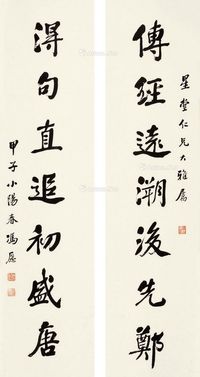 星堂仁兄大雅屬
傳經遠溯後先鄭
得句直追初盛唐
甲子小陽春馮愿